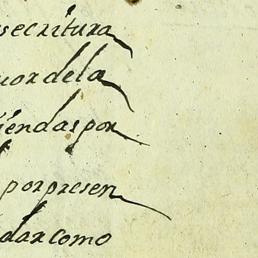 secritura
uordela
iendaspor
porpresen
darcomo